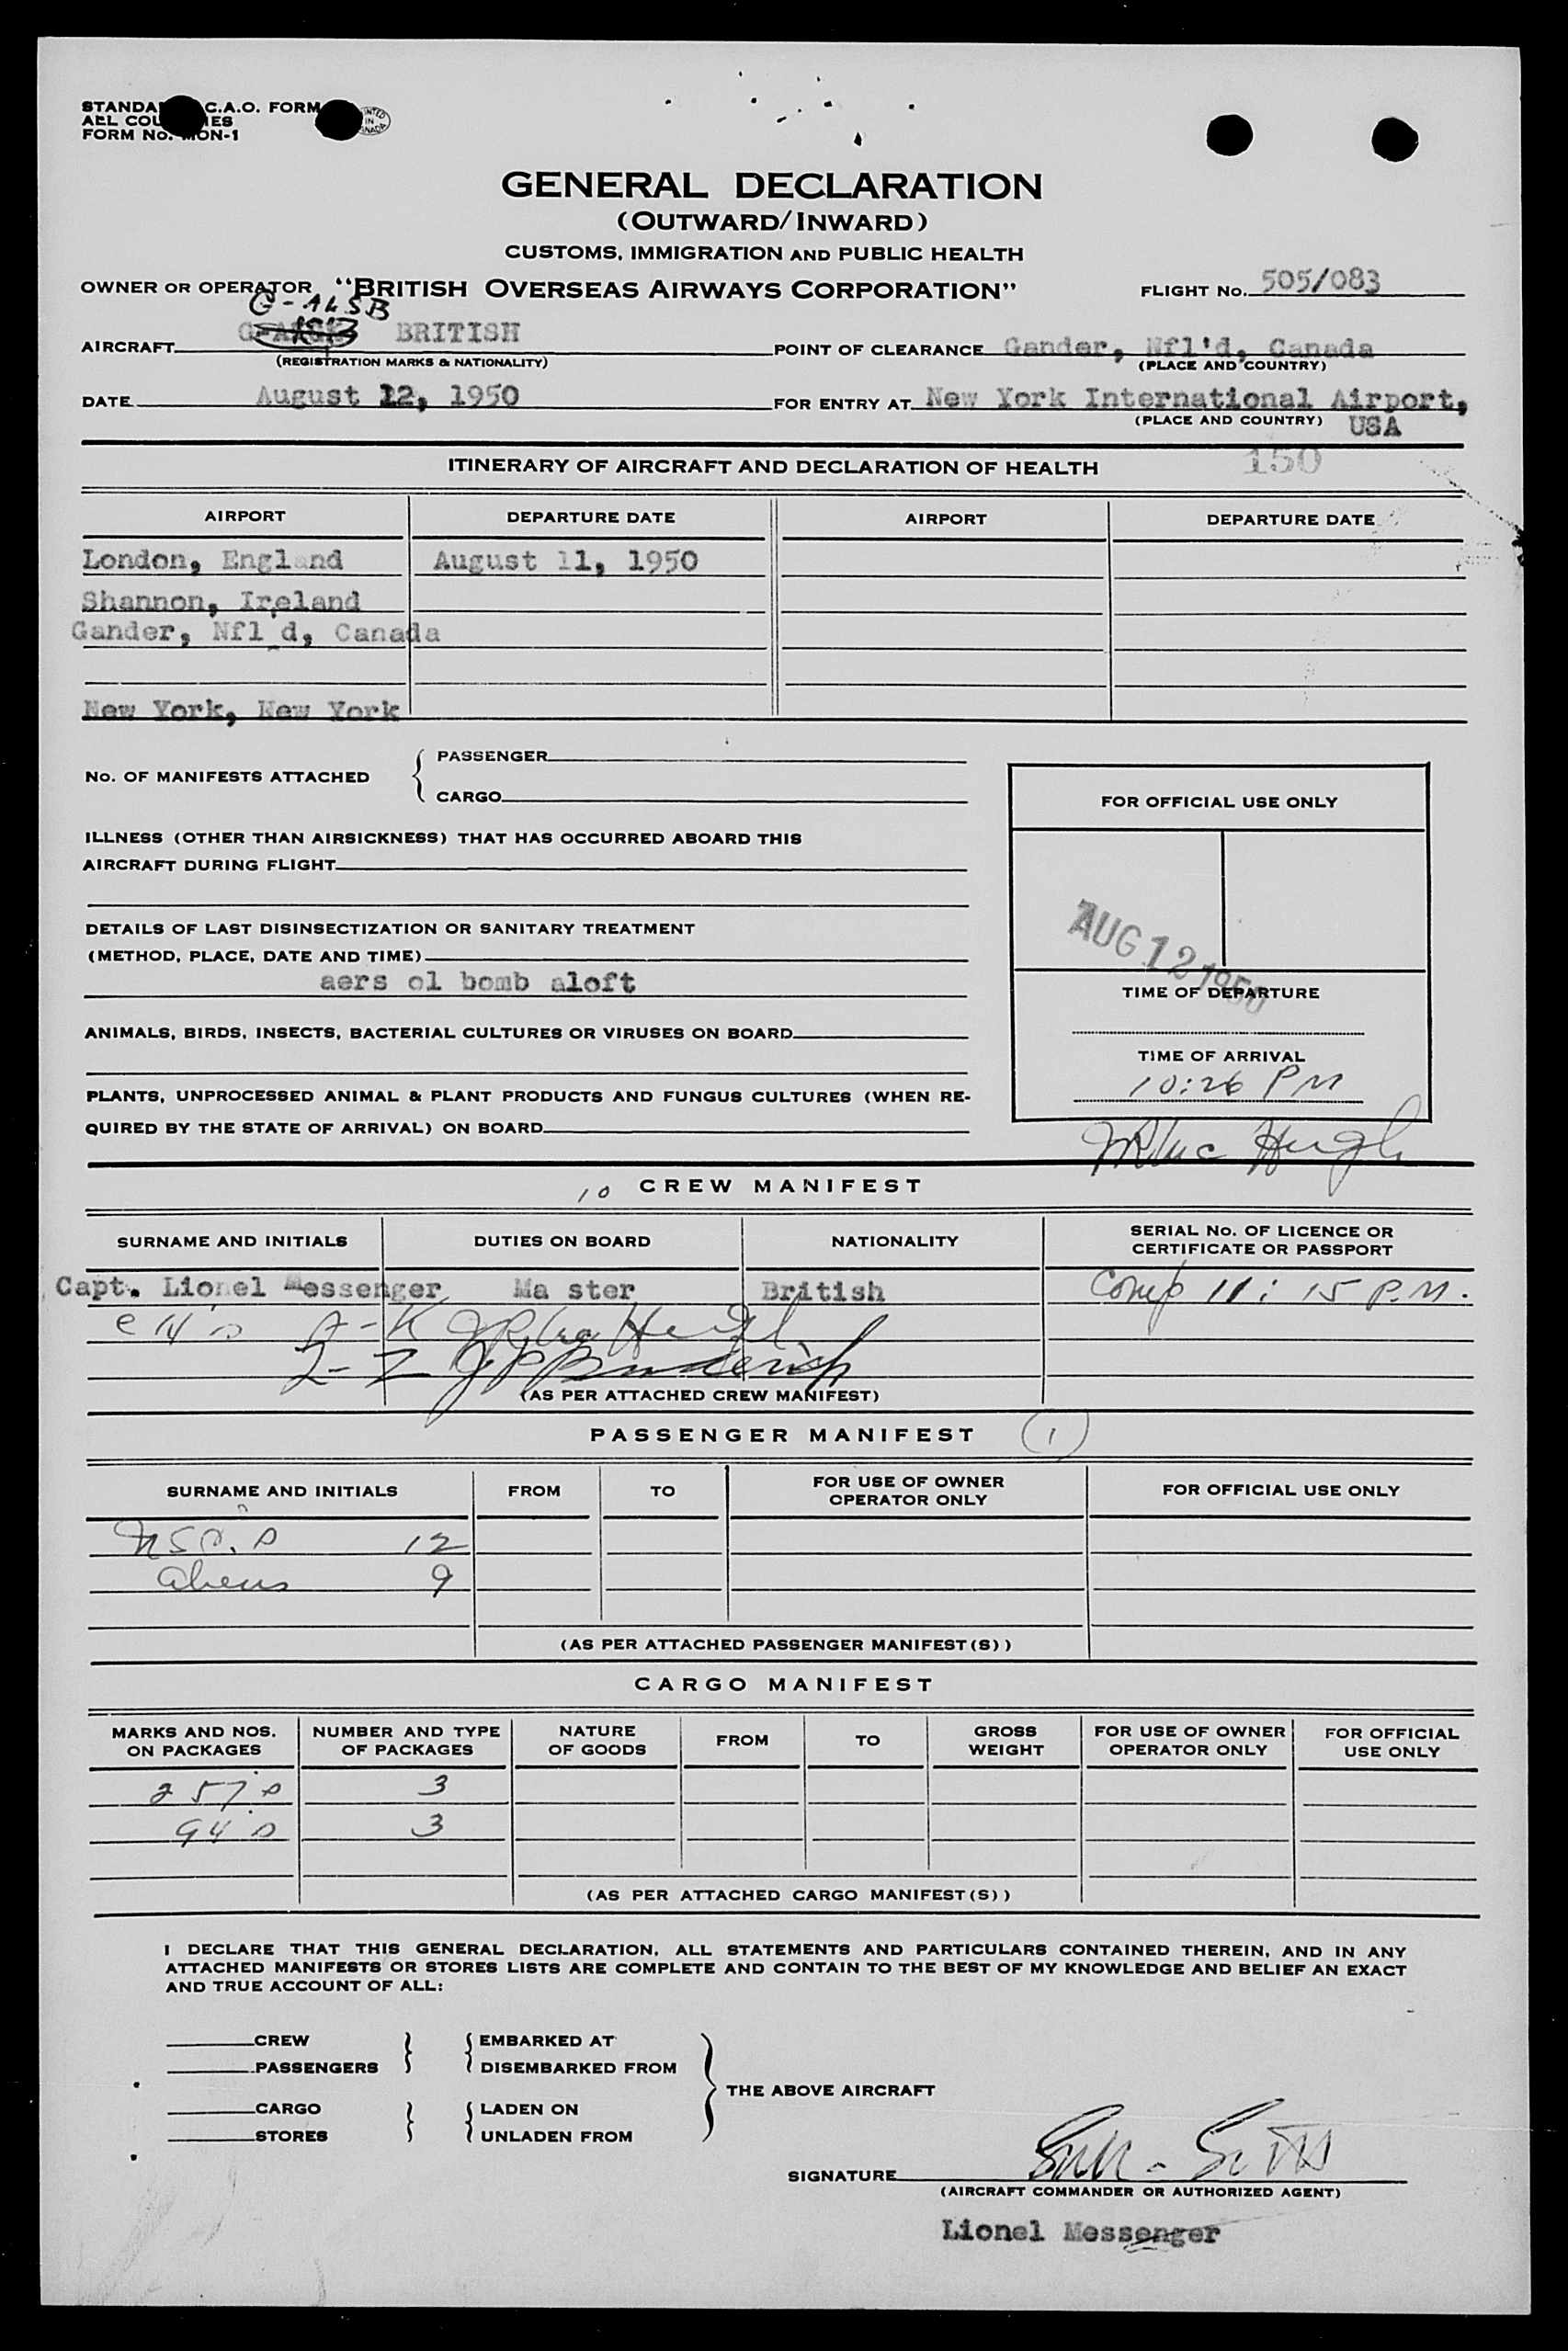 C.A.O. FORM
FORM No. MON-1
GENERAL DECLARATION
(OUTWARD/INWARD)
CUSTOMS, IMMIGRATION AND PUBLIC HEALTH
OWNER OR OPERATOR "BRITISH OVERSEAS AIRWAYS CORPORATION"
FLIGHT No. 505/083
G-ALSB
AIRCRAFT BRITISH
(REGISTRATION MARKS & NATIONALITY)
POINT OF CLEARANCE Gander, Nfl'd, Canada
(PLACE AND COUNTRY)
DATE August 12, 1950
FOR ENTRY AT New York International Airport,
(PLACE AND COUNTRY) USA
ITINERARY OF AIRCRAFT AND DECLARATION OF HEALTH 150
AIRPORT DEPARTURE DATE AIRPORT DEPARTURE DATE
London, England August 11, 1950
Shannon, Ireland
Gander, Nfl'd, Canada
New York, New York
No. OF MANIFESTS ATTACHED
PASSENGER
CARGO
ILLNESS (OTHER THAN AIRSICKNESS) THAT HAS OCCURRED ABOARD THIS
AIRCRAFT DURING FLIGHT
DETAILS OF LAST DISINSECTIZATION OR SANITARY TREATMENT
(METHOD, PLACE, DATE AND TIME)
aers ol bomb aloft
ANIMALS, BIRDS, INSECTS, BACTERIAL CULTURES OR VIRUSES ON BOARD
PLANTS, UNPROCESSED ANIMAL & PLANT PRODUCTS AND FUNGUS CULTURES (WHEN RE-
QUIRED BY THE STATE OF ARRIVAL) ON BOARD
FOR OFFICIAL USE ONLY
AUG 12 1950
TIME OF DEPARTURE
TIME OF ARRIVAL
10:26 PM
10 CREW MANIFEST
SURNAME AND INITIALS DUTIES ON BOARD NATIONALITY
SERIAL No. OF LICENCE OR
CERTIFICATE OR PASSPORT
Capt. Lionel Messenger Ma ster British Comp 11:15 P.M.
A-K
L-Z
(AS PER ATTACHED CREW MANIFEST)
PASSENGER MANIFEST (1)
SURNAME AND INITIALS FROM TO
FOR USE OF OWNER
OPERATOR ONLY
FOR OFFICIAL USE ONLY
USC.s 12
aliens 9
(AS PER ATTACHED PASSENGER MANIFEST(S))
CARGO MANIFEST
MARKS AND NOS.
ON PACKAGES
NUMBER AND TYPE
OF PACKAGES
NATURE
OF GOODS
FROM
TO
GROSS
WEIGHT
FOR USE OF OWNER
OPERATOR ONLY
FOR OFFICIAL
USE ONLY
257's 3
94's 3
(AS PER ATTACHED CARGO MANIFEST(S))
I DECLARE THAT THIS GENERAL DECLARATION, ALL STATEMENTS AND PARTICULARS CONTAINED THEREIN, AND IN ANY
ATTACHED MANIFESTS OR STORES LISTS ARE COMPLETE AND CONTAIN TO THE BEST OF MY KNOWLEDGE AND BELIEF AN EXACT
AND TRUE ACCOUNT OF ALL:
CREW
PASSENGERS
EMBARKED AT
DISEMBARKED FROM
CARGO
STORES
LADEN ON
UNLADEN FROM
THE ABOVE AIRCRAFT
SIGNATURE
(AIRCRAFT COMMANDER OR AUTHORIZED AGENT)
Lionel Messenger